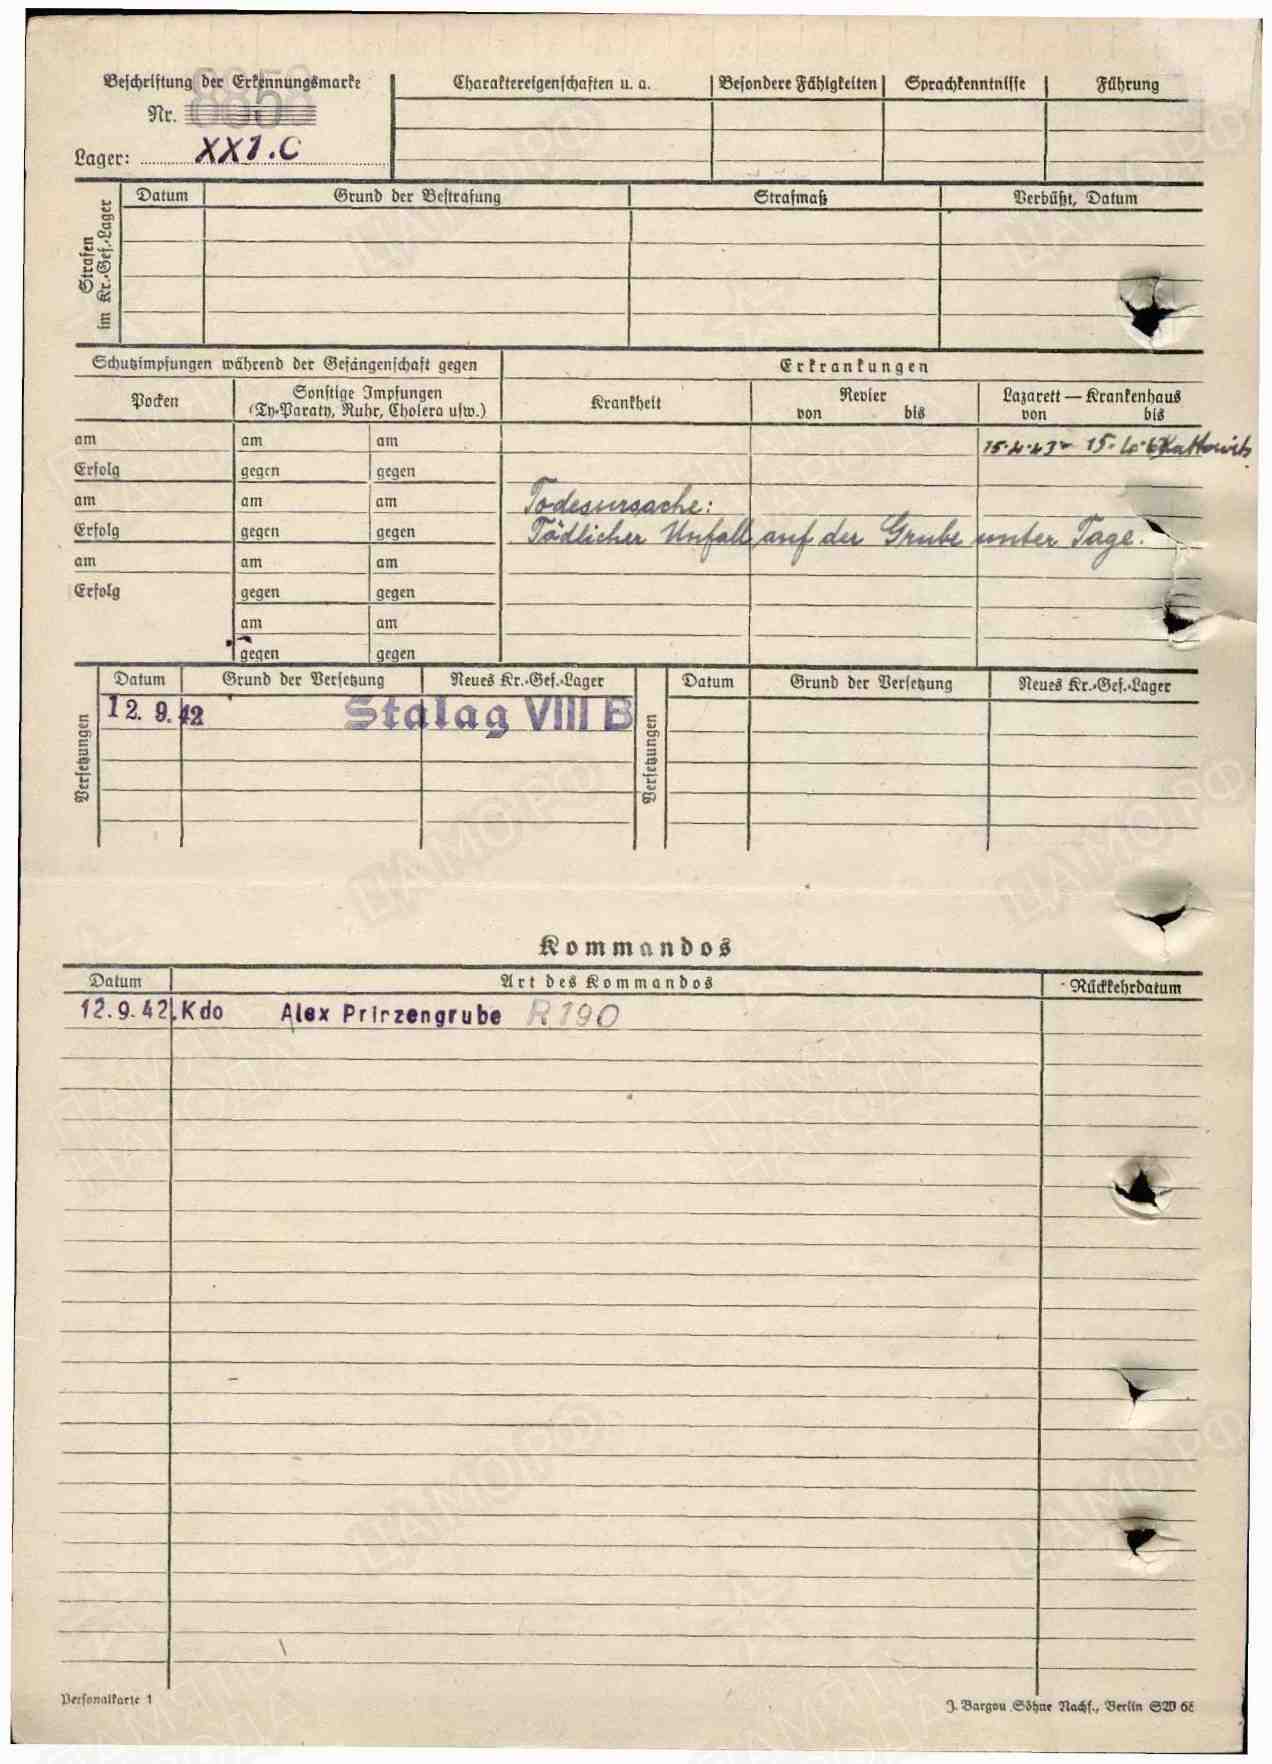 Beschriftung der Erkennungsmarke
Nr. 8850
Lager: XXI.C
Charaktereigenschaften u. a. Besondere Fähigkeiten Sprachkenntnisse Führung
Strafen im Kr.-Gef.-Lager
Datum Grund der Bestrafung Strafmaß Verbüßt, Datum
Schutzimpfungen während der Gefangenschaft gegen
Pocken
Sonstige Impfungen
(Ty-Paraty, Ruhr, Cholera usw.)
Erkrankungen
Krankheit
Revier
von bis
Lazarett — Krankenhaus
von bis
am am am
15.4.43 - 15. Kattowitz
Erfolg gegen gegen
am am am
Todesursache:
Erfolg gegen gegen
Tödlicher Unfall auf der Grube unter Tage.
am am am
Erfolg gegen gegen
am am
gegen gegen
Versetzungen
Datum Grund der Versetzung Neues Kr.-Gef.-Lager
12. 9. 42 Stalag VIII B
Versetzungen
Datum Grund der Versetzung Neues Kr.-Gef.-Lager
Kommandos
Datum Art des Kommandos Rückkehrdatum
12.9.42. Kdo Alex Prinzengrube R 190
Personalkarte 1
J. Bargou Söhne Nachf., Berlin SW 68
ЦАМО РФ
ПАМЯТЬ НАРОДА